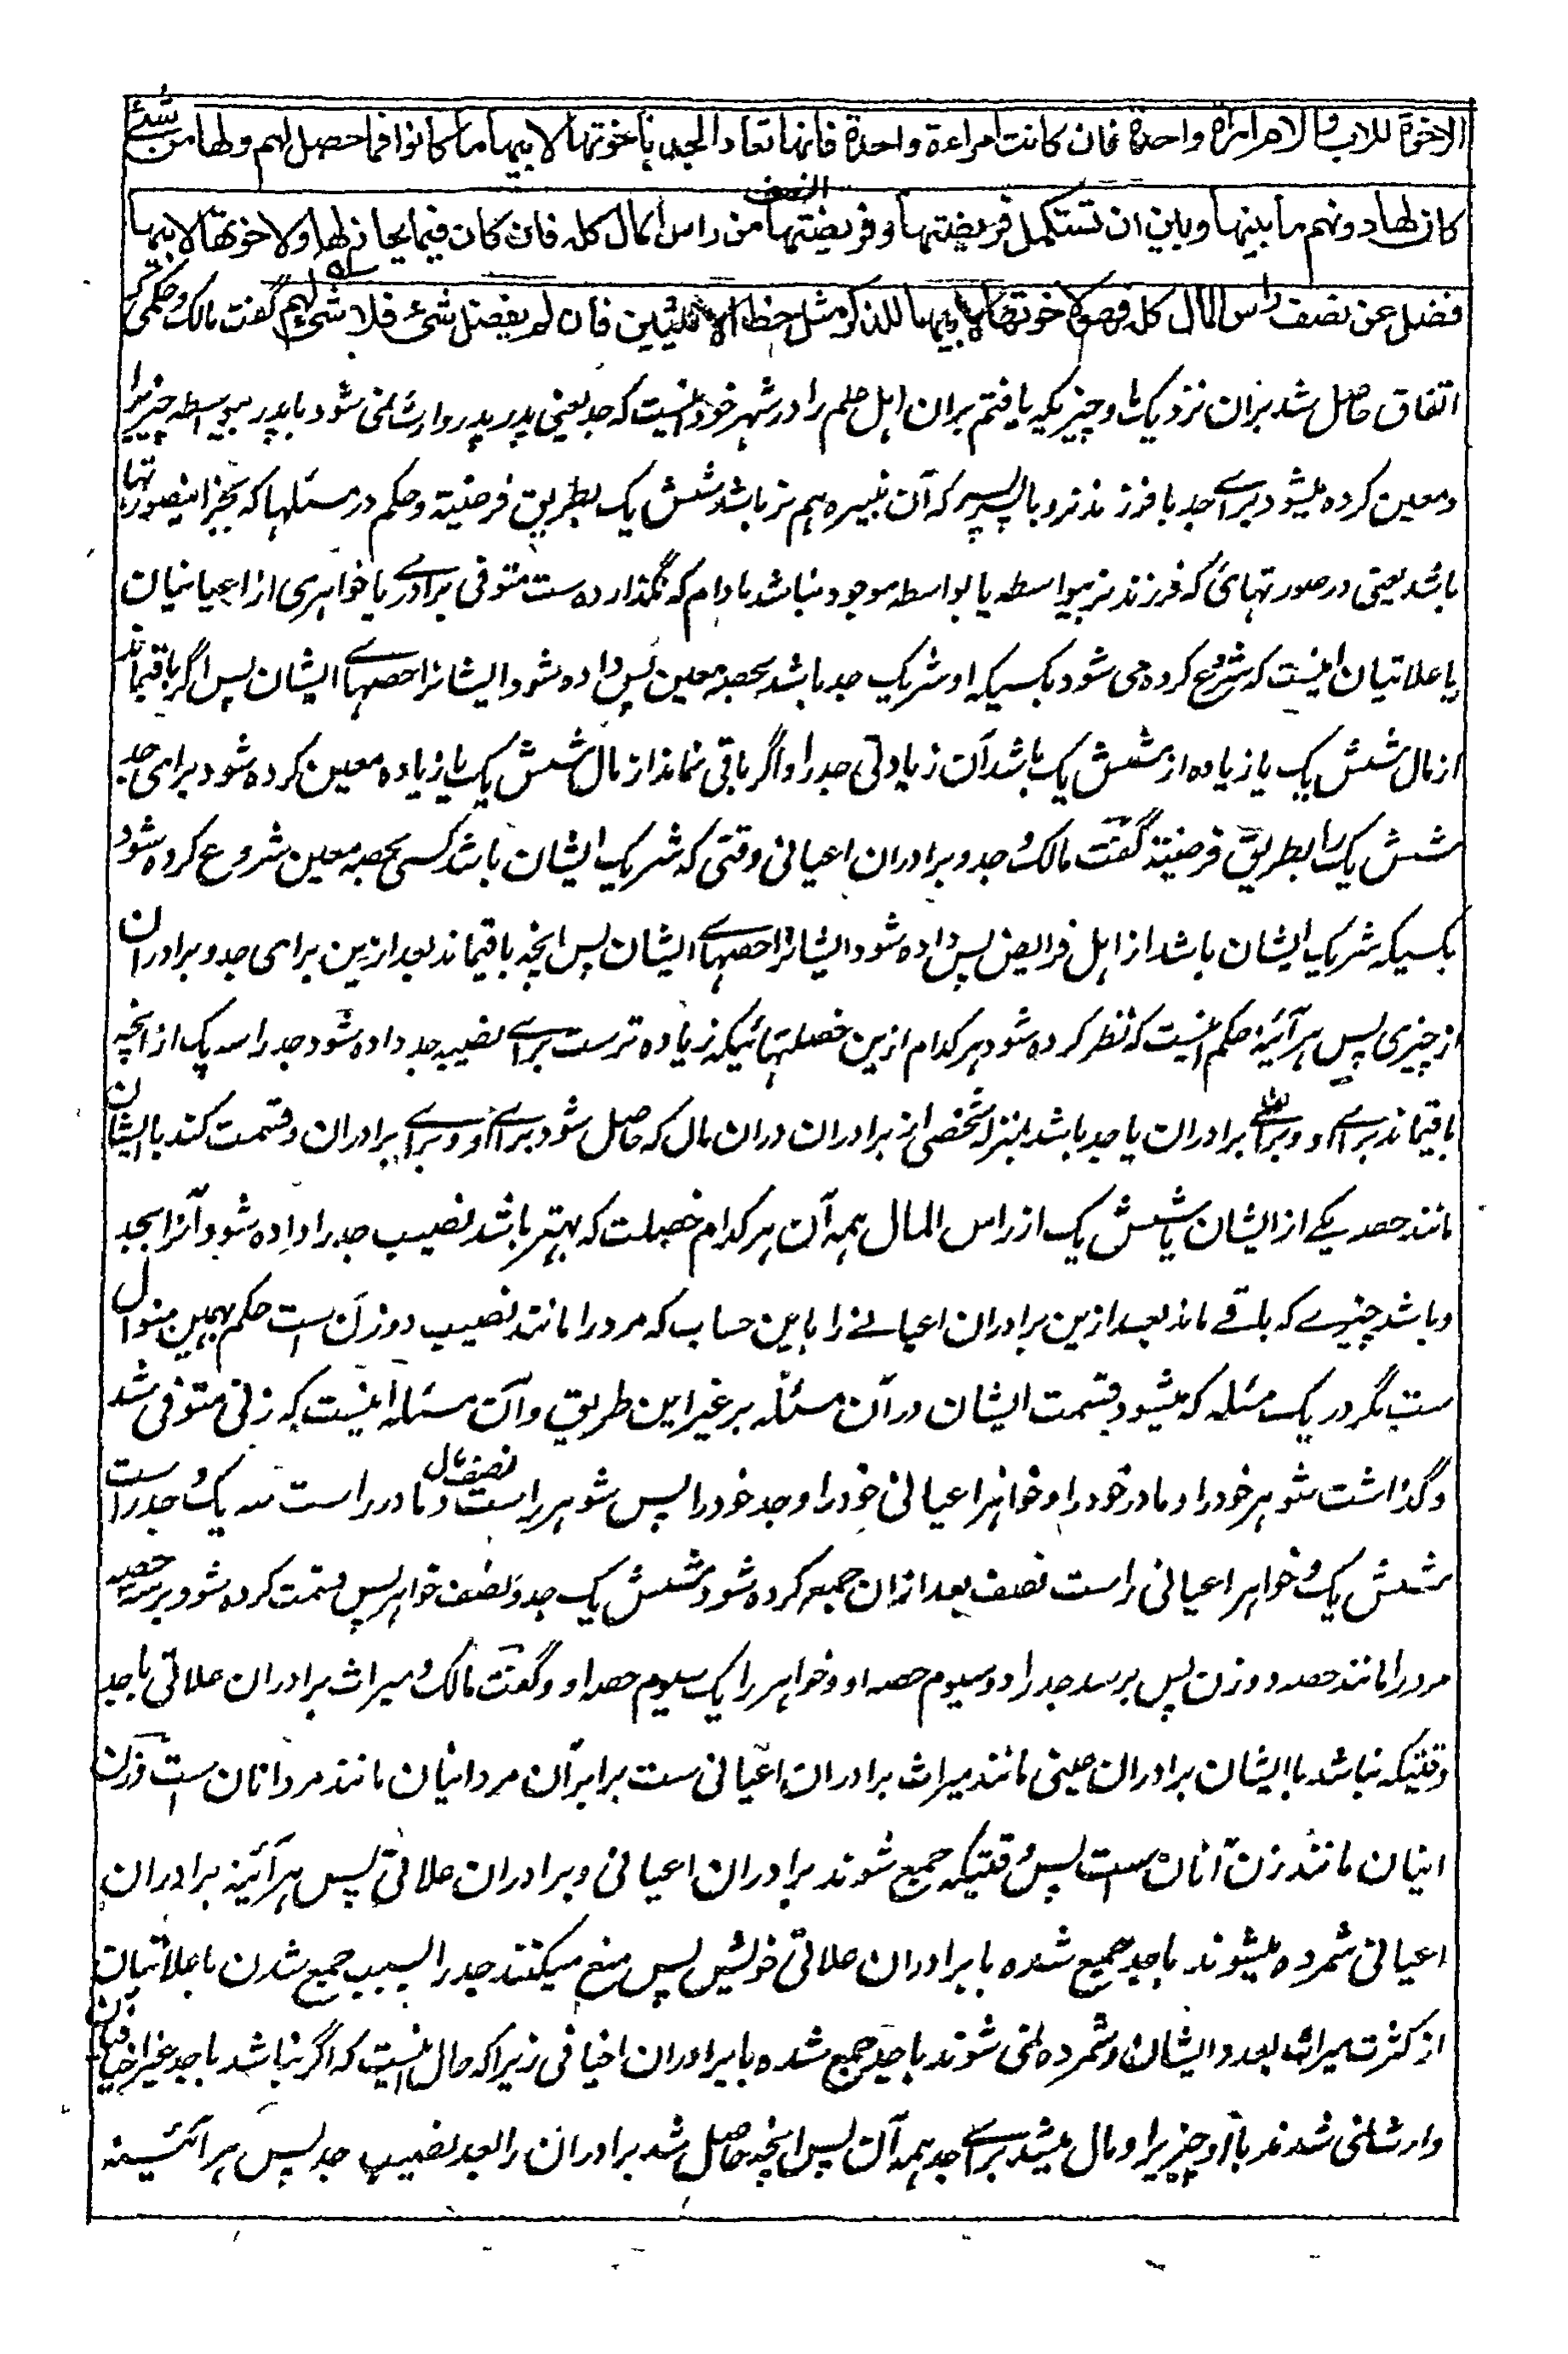 الاخوة للاب والام امراة واحدة فان كانت امراءة واحدة فانها تعاد الجد باخوتها لابيها ما كانوا فما حصل لهم ولها من شئ
كان لها دونهم ما بينها وبين ان تستكمل فريضتها وفريضتها النصف من راس المال كله فان كان فيما يحاز لها ولاخوتها لابيها
فضل عن نصف راس المال كله فهو لاخوتها لابيها للذكر مثل حظ الانثيين فان لم يفضل شئ فلا شئ لهم گفت مالك وحكمى كه
اتفاق حاصل شد بران نزديك ما و چيزيكه يافتم بران اهل علم را در شهر خود اينست كه جد يعنى پدر پدر وارث نمى شود با پدر بيواسطه چيزيرا
و معين كرده ميشود براے جد با فرزند نر و با پسر پسر كه آن نبيره هم نر باشد شش يك بطريق فرضيت و حكم در مسئلها كه بجز اينصورتها
باشد يعنى در صورتهائى كه فرزند نر بيواسطه يا بواسطه موجود نباشد مادام كه نگذارده ست متوفى برادرے يا خواهرى از اعيانيان
يا علاتيان اينست كه شروع كرده مى شود بكسيكه او شريك جد باشد بحصه معين پس داده شود ايشانرا حصهاے ايشان پس اگر باقيماند
از مال شش يك يا زياده از شش يك باشد آن زيادتى جد را و اگر باقى نماند از مال شش يك يا زياده معين كرده شود براى جد
شش يك را بطريق فرضيت گفت مالك و جد و برادران اعيانى وقتى كه شريك ايشان باشد كسى بحصه معين شروع كرده شود
بكسيكه شريك ايشان باشد از اهل فرايض پس داده شود ايشانرا حصهاے ايشان پس انچه باقيماند بعد ازين براى جد و برادران
از چيزى پس هر آئينه حكم اينست كه نظر كرده شود هر كدام ازين خصلتهائيكه زياده ترست براے نصيب جد داده شود جد را سه يك از انچه
باقيماند براے او و براے برادران يا جد باشد بمنزله شخصى از برادران دران مال كه حاصل شود براے او و براے برادران و قسمت كند با ايشان
مانند حصه يكے از ايشان يا شش يك از راس المال همه آن هر كدام خصلت كه بهتر باشد نصيب جد را داده شود آنرا بجد
و باشد چيزے كه باقے ماند بعد ازين برادران اعيانے را باين حساب كه مرد را مانند نصيب دو زن ست حكم بهمين منوال
ست مگر در يك مسئله كه ميشود قسمت ايشان در آن مسئله بر غير اين طريق و آن مسئله اينست كه زنى متوفى شد
و گذاشت شوهر خود را و مادر خود را و خواهر اعيانى خود را و جد خود را پس شوهر راست نصف مال و مادر راست سه يك و جد راست
شش يك و خواهر اعيانى راست نصف بعد ازان جمع كرده شود شش يك جد و نصف خواهر پس قسمت كرده شود بر سه حصه
مرد را مانند حصه دو زن پس برسد جد را دو سيوم حصه او و خواهر را يك سيوم حصه او و گفت مالك و ميراث برادران علاتى با جد
وقتيكه نباشد با ايشان برادران عينى مانند ميراث برادران اعيانى ست برابر آن مرد اينان مانند مرد آنان ست و زن
اينان مانند زن آنان ست پس وقتيكه جمع شوند برادران اعيانى و برادران علاتى پس هر آئينه برادران
اعيانى شمرده ميشوند با جد جمع شده با برادران علاتى خويش پس منع ميكنند جد را بسبب جمع شدن با علاتيان
از كثرت ميراث بعدد ايشان و شمرده نمى شوند با جد جمع شده با برادران اخيافى زيرا كه حال اينست كه اگر نباشد با جد غير اخيافيان
وارث نمى شدند با او چيزيرا و مال ميشد براے جد همه آن پس انچه حاصل شد برادران را بعد نصيب جد پس هر آئينه